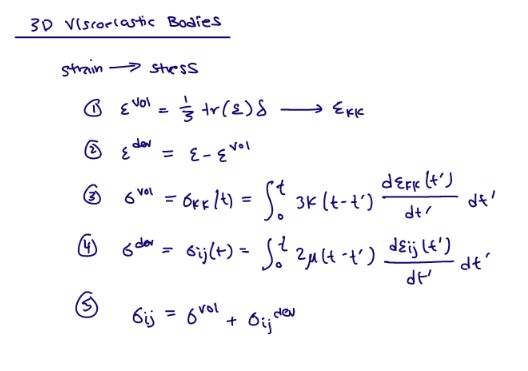 3D Viscoelastic Bodies
strain → stress
① ε^vol = 1/3 tr(ε)δ → ε_KK
② ε^dev = ε - ε^vol
③ σ^vol = σ_KK(t) = ∫_0^t 3K(t-t') dε_KK(t')/dt' dt'
④ σ^dev = σ_ij(t) = ∫_0^t 2μ(t-t') dε_ij(t')/dt' dt'
⑤ σ_ij = σ^vol + σ_ij^dev